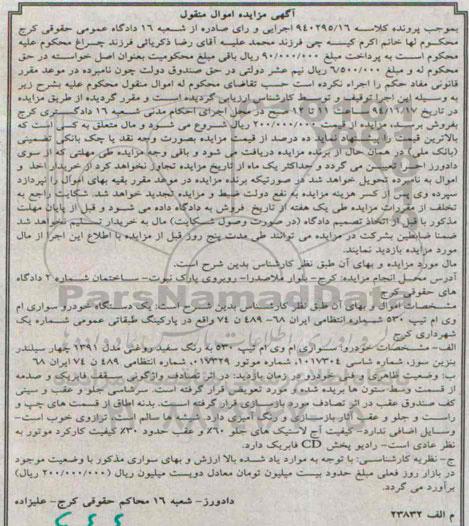 آگهی مزایده اموال منقول
بموجب پرونده کلاسه ۹۴۰۲۹۵/۱۶ اجرایی و رای صادره از شعبه ۱۶ دادگاه عمومی حقوقی کرج
محکوم لها خانم اکرم کیسه چی فرزند محمد علیه آقای رضا ذکریائی فرزند چراغ محکوم علیه
محکوم است به پرداخت مبلغ ۹۰/۰۰۰/۰۰۰ ریال باقی مبلغ محکومیت بعنوان اصل خواسته در حق
محکوم له و مبلغ ۶/۵۰۰/۰۰۰ ریال نیم عشر دولتی در حق صندوق دولت چون نامبرده در موعد مقرر
قانونی مفاد حکم را اجراء نکرده است حسب تقاضای محکوم له اموال منقول محکوم علیه بشرح زیر
به وسیله این اجرا توقیف و توسط کارشناس ارزیابی گردیده است و مقرر گردیده از طریق مزایده
در تاریخ صبح در محل اجرای احکام مدنی شعبه ۱۶ دادگستری کرج
بفروش برسد ۲۰۰/۰۰۰/۰۰۰ ریال شروع می شود و مال متعلق به کسی است که
بالاترین قیمت را پیشنهاد نماید ده درصد از قیمت مزایده بصورت وجه نقد یا چک بانکی تضمینی
(بانک ملی) در همان حال از برنده مزایده دریافت می شود و باقی وجه مزایده طی مهلتی که از سوی
دادورز اجرا تعیین می گردد و حداکثر یک ماه از تاریخ مزایده تجاوز نخواهد کرد از خریدار اخذ و
اموال به نامبرده تحویل خواهد شد در صورتیکه برنده مزایده در موعد مقرر بقیه بهای اموال را نپردازد
سپرده وی پس از کسر هزینه مزایده به نفع دولت ضبط و مزایده تجدید خواهد شد. شکایت راجع به
تخلف از مقررات مزایده طی یک هفته از تاریخ فروش به دادگاه داده می شود و قبل از پایان مهلت
مذکور یا قبل از اتخاذ تصمیم دادگاه (در صورت وصول شکایت) مال به خریدار تسلیم نخواهد شد
ضمنا ضابطین بشرکت در مزایده می توانند طی مدت پنج روز قبل از مزایده با اطلاع این اجرا از مال
مورد مزایده بازدید نمایند.
مال مورد مزایده و بهای آن طبق نظر کارشناس بدین شرح است
آدرس محل انجام مزایده: کرج- بلوار ملاصدرا- روبروی پارک نبوت- ساختمان شماره ۲ دادگاه
های حقوقی کرج
مشخصات اموال و بهای آن طبق نظر کارشناس بدین شرح است: یک دستگاه خودرو سواری ام
وی ام تیپ ۵۳۰ شماره انتظامی ایران ۶۸- ۴۸۹ ن ۷۴ واقع در پارکینگ طبقاتی عمومی شماره یک
شهرداری کرج
الف- مشخصات خودرو: سواری ام وی ام تیپ ۵۳۰ به رنگ سفید روغنی مدل ۱۳۹۱ چهار سیلندر
بنزین سوز، شماره شاسی ۰۱۶۷۳۰۴ شماره موتور ۰۱۷۳۲۹ شماره انتظامی ۴۸۹ ن ۷۴ ایران ۶۸
ب- وضعیت ظاهری و فنی خودرو در زمان بازدید: در اثر تصادف واژگونی سقف فابریک و صدمه
از قسمت وسط ستون ها بریده شده و مورد تعویض قرار گرفته است. سر شاسی جلو و عقب و سینی
کف صندوق عقب در اثر تصادف مورد بازسازی قرار گرفته است. بدنه اطاق از قسمت های چپ و
راست و جلو و عقب آثار بازسازی و رنگ آمیزی دارد شیشه ها سالم است. تزئینات داخلی خوب است-
وسایل اضافی ندارد- کیفیت آج لاستیک های جلو ۶۰٪ و عقب حدود ۳۰٪ کیفیت کارکرد موتور به
نظر عادی است- رادیو پخش CD فابریک دارد.
ج- نظریه کارشناسی: با توجه به موارد یاد شده بالا ارزش و بهای سواری مذکور با وضعیت موجود
در بازار روز فعلی مبلغ حدود بیست میلیون تومان معادل دویست میلیون ریال (۲۰۰/۰۰۰/۰۰۰ ریال)
برآورد می گردد.
دادورز- شعبه ۱۶ محاکم حقوقی کرج- علیزاده
م الف ۲۳۸۳۲
ParsNamadData